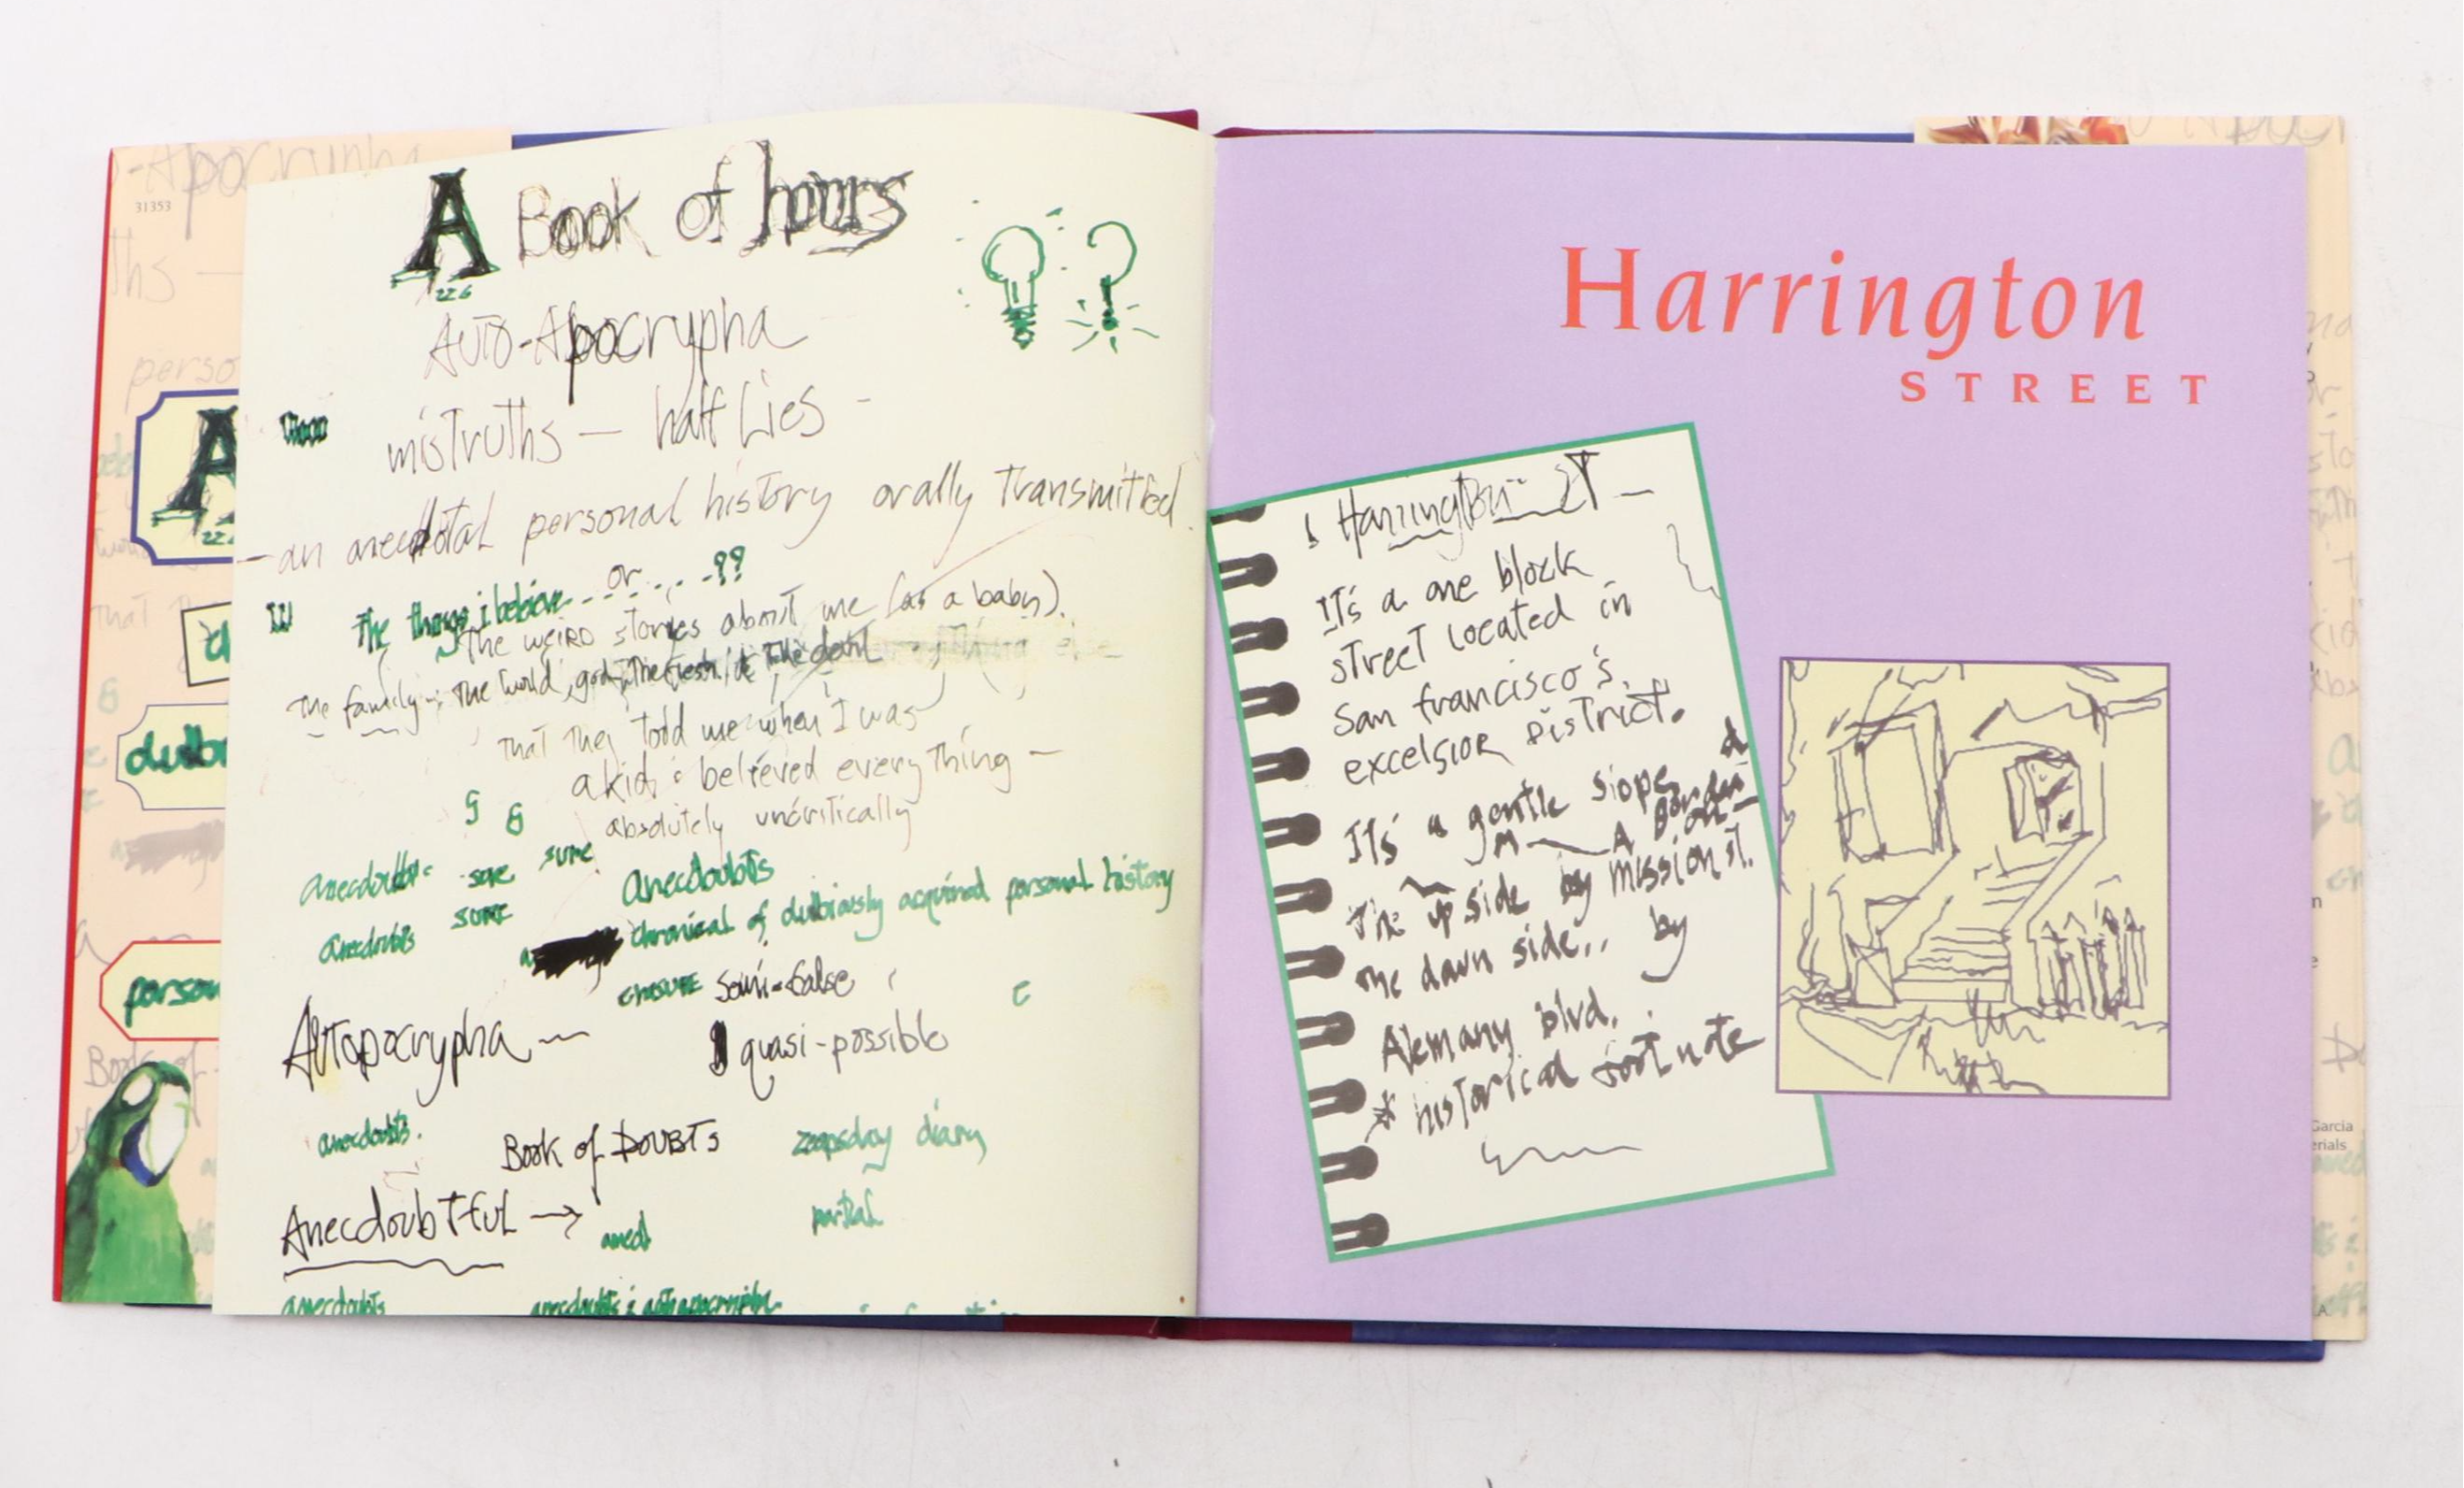 -Apocrypha
31353
ths —
perso
A
dubi
person
Book of
A Book of hours
226
Auto-Apocrypha
misTruths — half Lies -
— an anecdotal personal history orally Transmitted.
The things i believe... or... -??
The weird stories about me (as a baby).
The family -; The World, god, The flesh, & The devil
thing else
That They Told me when I was
a kid i believed everything —
absolutely uncritically
anecdoubts
some
anecdoubts
some
anecdoubts
chronical of dubiously acquired personal history
semi-false
Autopocrypha —
quasi-possible
anecdoubts.
Book of DOUBTS
diary
AnecdoubTfuL →
partial
anecd
anecdoubts
anecdoubts & autoapocrypha.
Harrington
STREET
Harrington ST —
IT's a one block
sTreeT Located in
San francisco's
excelsior DisTricT.
IT's a gentle slope
The up side by mission sT.
The down side.. by
Alemany blvd.
* hisTorical footnote
Garcia
erials